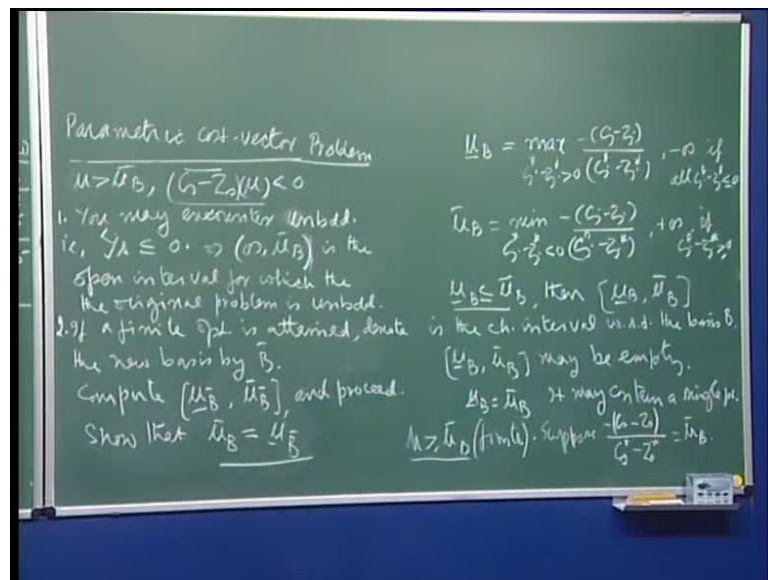 Parametric cost-vector Problem
μ > μ̄_B, (c̄_s - z_s)(μ) < 0
1. You may encounter unbdd.
ie, y_s ≤ 0. ⇒ (∞, μ̄_B) is the
open interval for which the
the original problem is unbdd.
2. If a finite opt. is attained, denote
the new basis by B̄.
Compute [μ̲_B̄, μ̄_B̄], and proceed.
Show that μ̄_B = μ̲_B̄
μ̲_B = max_{c_j^* - z_j^* > 0} -(c_j - z_j)/(c_j^* - z_j^*), -∞ if all c_j^* - z_j^* ≤ 0
μ̄_B = min_{c_j^* - z_j^* < 0} -(c_j - z_j)/(c_j^* - z_j^*), +∞ if c_j^* - z_j^* ≥ 0
μ̲_B ≤ μ̄_B, then [μ̲_B, μ̄_B]
is the ch. interval w.r.t. the basis B.
[μ̲_B, μ̄_B] may be empty.
μ̲_B = μ̄_B It may contain a single pt.
μ ≥ μ̄_B (finite). Suppose -(c_s - z_s)/(c_s^* - z_s^*) = μ̄_B.